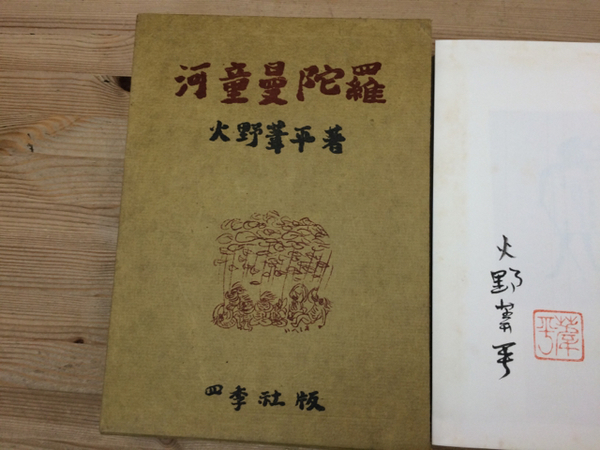 河童曼陀羅
火野葦平著
四季社版
火野葦平
葦平